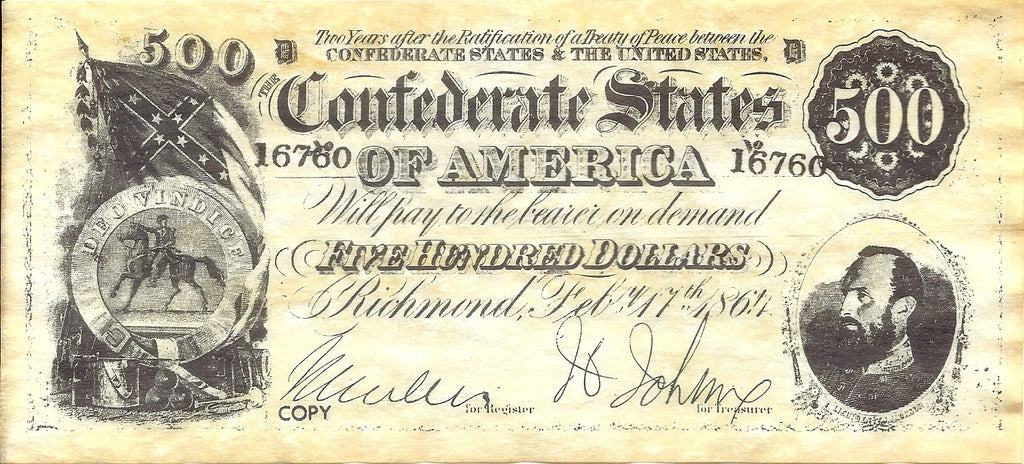 Two Years after the Ratification of a Treaty of Peace between the
500 D CONFEDERATE STATES & THE UNITED STATES, D
THE Confederate States 500
16760 OF AMERICA 16760
DEO VINDICE
Will pay to the bearer on demand
FIVE HUNDRED DOLLARS
Richmond, Feby. 17th 1864
COPY for Register for Treasurer